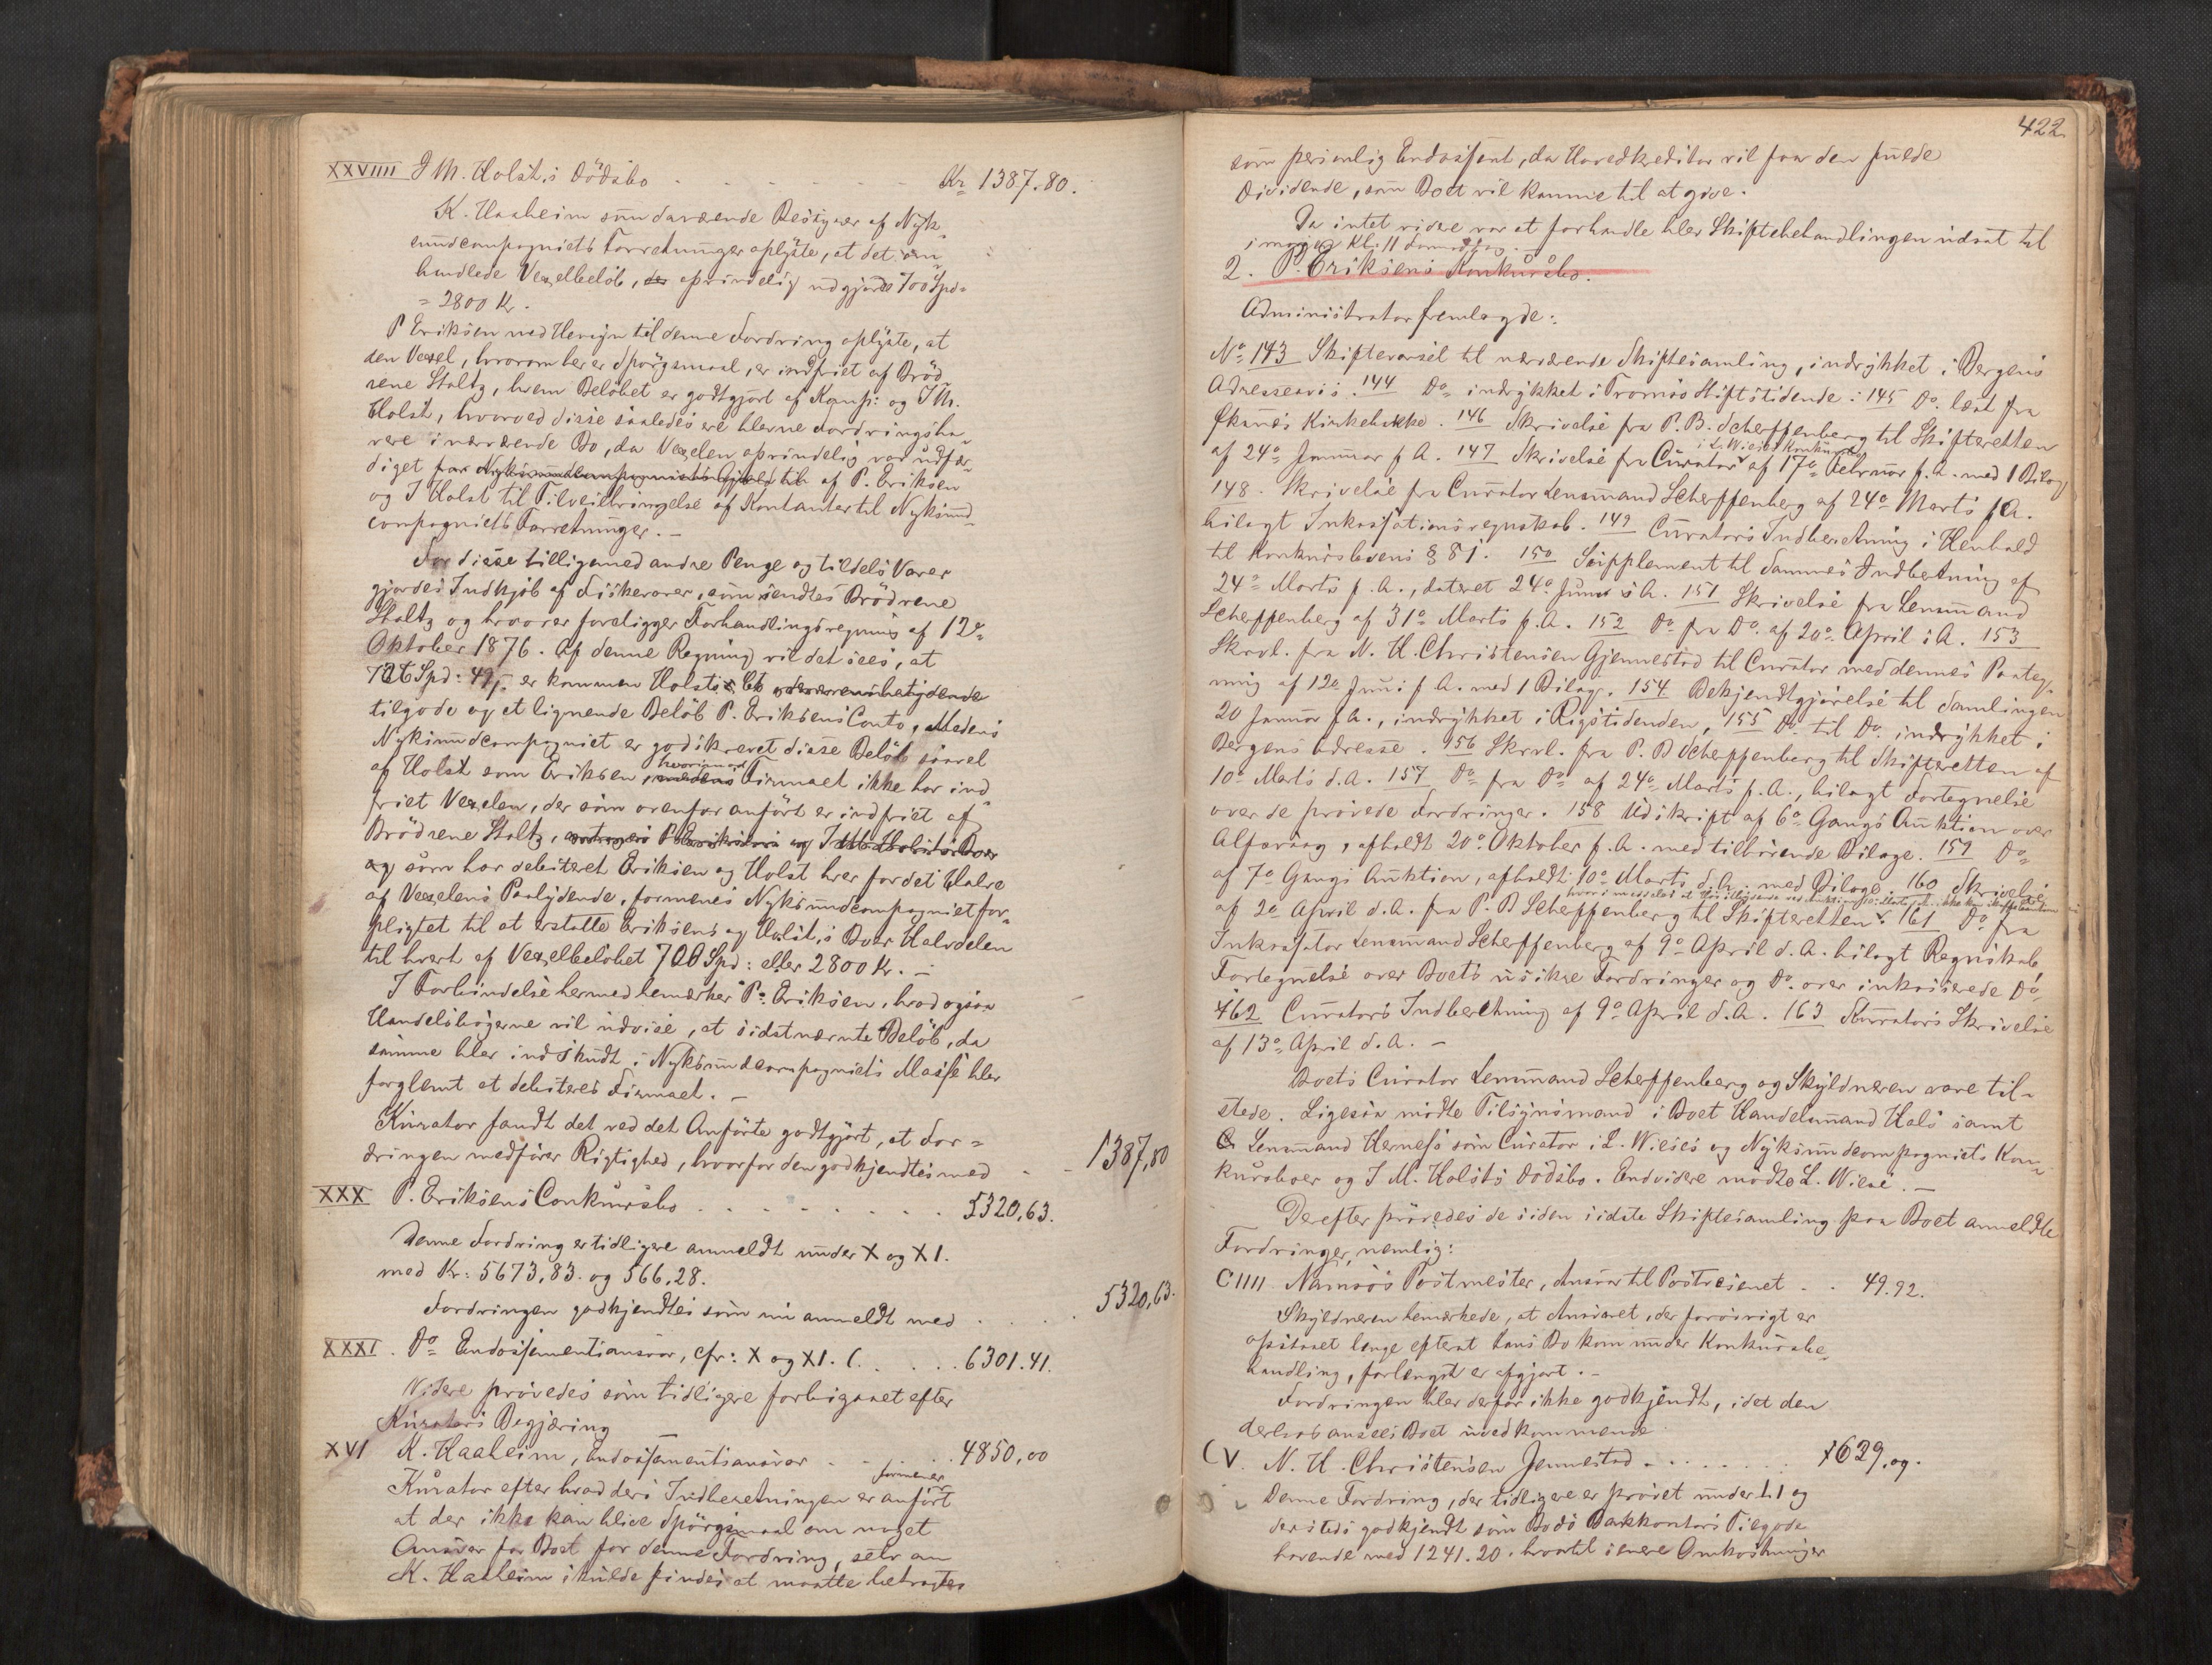 XXVIIII J M. Holst's Dödsbo - - - - - - Kr 1387.80.
K. Haaheim som daværende Bestyrer af Nyk-
sundcompagniets Forretninger oplyste, at det om
handlede Vexelbelöb, oprindelig udgjorde 700 Spd =
= 2800 Kr.
P Eriksen med Hensyn til denne Fordring oplyste, at
den Vexel, hvorom her er Spörgsmaal, er indfriet af Bröd
rene Stoltz, hvem Belöbet er godtgjort af Komp: og J M.
Holst, hvorved disse saaledes ere blevne Fordringsha-
vere i nærværende Bo, da Vexelen oprindelig var udfær-
diget af P. Eriksen
og J Holst til Tilveiebringelse af Kontanter til Nyksund-
compagniets Forretninger. –
For disse tilligemed andre Penge og tildels Varer
gjordes Indkjöb af Fiskevarer, som sendtes Brödrene
Stoltz og hvorover foreligger Forhandlingsregning af 12te
Oktober 1876. Af denne Regning vil det sees, at
Spd: er kommen Holsts Bo
tilgode og et lignende Belöb P. Eriksens Conto, Medens
Nyksundcompagniet er godskrevet disse Belöb saavel
af Holst som Eriksen, hvorimod Firmaet ikke har ind-
friet Vexelen, der som ovenfor anfört er indfriet af
Brödrene Stoltz,
og som har debiteret Eriksen og Holst hver for det Halve
af Vexelens Paalydende, formenes Nyksundcompagniet for-
pligtet til at erstatte Eriksens og Holst's Boer Halvdelen
til hvert af Vexelbelöbet 700 Spd: eller 2800 Kr. –
I Forbindelse hermed bemærker P. Eriksen, hvad ogsaa
Handelsbögerne vil udvise, at sidstnævnte Belöb, da
samme blev indskudt i Nyksundcompagniets Masse blev
forglemt at debiteres Firmaet. –
Kurator fandt det ved det Anförte godtgjort, at For =
dringen medförer Rigtighed, hvorfor den godkjendtes med - - 1387,80
XXX P. Eriksens Conkursbo - - - - - - - - 5320,63.
Denne Fordring er tidligere anmeldt under X og XI.
med Kr: 5673,83. og 566,28.
Fordringen godkjendtes som nu anmeldt med . . . . 5320,63.
XXXI. Do Endossementsansvar, cfr: X og XI. . . . . 6301.41.
Videre prövedes som tidligere forbigaaet efter
Kurators Begjæring
XVI K. Haaheim, Endossementsansvar - - . . 4850,00
Kurator formener efter hvad der i Indberetningen er anfört
at der ikke kan blive Spörgsmaal om noget
Ansvar for Boet for denne Fordring, selv om
K. Haaheim skulde findes at maatte betragtes
422.
som personlig Endossent, da Hovedkreditor vil faa den fulde
Dividende, som Boet vil komme til at give.
Da intet videre var at forhandle blev Skiftebehandlingen udsat til
imorgen Kl. 11 Formiddag. –
2. P. Eriksens Konkursbo.
Administrator fremlagde:
No 143 Skiftevarsel til nærværende Skiftesamling, indrykket i Bergens
Adresseavis. 144 Do indrykket i Tromsö Stiftstidende. 145 Do læst fra
Öksnes Kirkebakke. 146 Skrivelse fra P. B. Scheffenberg til Skifteretten
af 24de Januar f A. 147 Skrivelse fra Curator i L. Wieses Konkursbo af 17de Februar f. A. med 1 Bilag
148. Skrivelse fra Curator Lensmand Scheffenberg af 24de Marts f A.
bilagt Inkassationsregnskab. 149 Curators Indberetning i Henhold
til Konkurslovens § 81. 150 Supplement til Sammes Indberetning af
24de Marts f. A., dateret 24de s A. 151 Skrivelse fra Lensmand
Scheffenberg af 31te Marts f. A. 152 Do fra Do. af 20de April s A. 153
Skrvl. fra N. H. Christensen Gjennestad til Curator med dennes Paateg-
ning af 12te Juni f A. med 1 Bilag. 154 Bekjendtgjörelse til Samlingen
20 Januar f A., indrykket i Rigstidenden, 155 Do. til Do. indrykket i
Bergens Adresse. 156 Skrvl. fra P. B Scheffenberg til Skifteretten af
10de Marts d. A. 157 Do fra Do af 24de Marts f. A., bilagt Fortegnelse
over de prövede Fordringer. 158 Udskrift af 6te Gangs Auktion over
Alfsvaag, afholdt 20de Oktober f. A. med tilhörende Bilage. 159 Do
af 7de Gangs Auktion, afholdt 10de Marts d. A. med Bilage. 160 Skrivelse
af 2den April d. A. fra P. B Scheffenberg til Skifteretten. 161 Do. fra
Inkassator Lensmand Scheffenberg af 9de April d. A. bilagt Regnskab,
Fortegnelse over Boets usikre Fordringer og Do. over inkasserede Do,
162 Curators Indberetning af 9de April d. A. 163 Kurators Skrivelse
af 13de April d. A. –
Boets Curator Lensmand Scheffenberg og Skyldneren vare til-
stede. Ligesaa mödte Tilsynsmand i Boet Handelsmand Hals samt
Lensmand Hernes som Curator i L. Wieses og Nyksundcompagniets Kon-
kursboer og J M. Holsts Dödsbo. Endvidere mödte L. Wiese. –
Derefter prövedes de siden sidste Skiftesamling paa Boet anmeldte
Fordringer, nemlig:
CIIII. Namsos Postmester, Ansvar til Postvæsenet . . 49.92.
Skyldneren bemærkede, at Ansvaret, der forövrigt er
opstaaet længe efterat hans Bo kom under Konkursbe-
handling, forlængst er afgjort. –
Fordringen blev derfor ikke godkjendt, idet den
derhos ansees Boet uvedkommende
CV. N. H. Christensen Jennestad - . . . . . . . 1639.09.
Denne Fordring, der tidligere er prövet under LI og
dersteds godkjendt som Bodö Bankkontors Tilgode
havende med 1241.20. hvortil senere Omkostninger